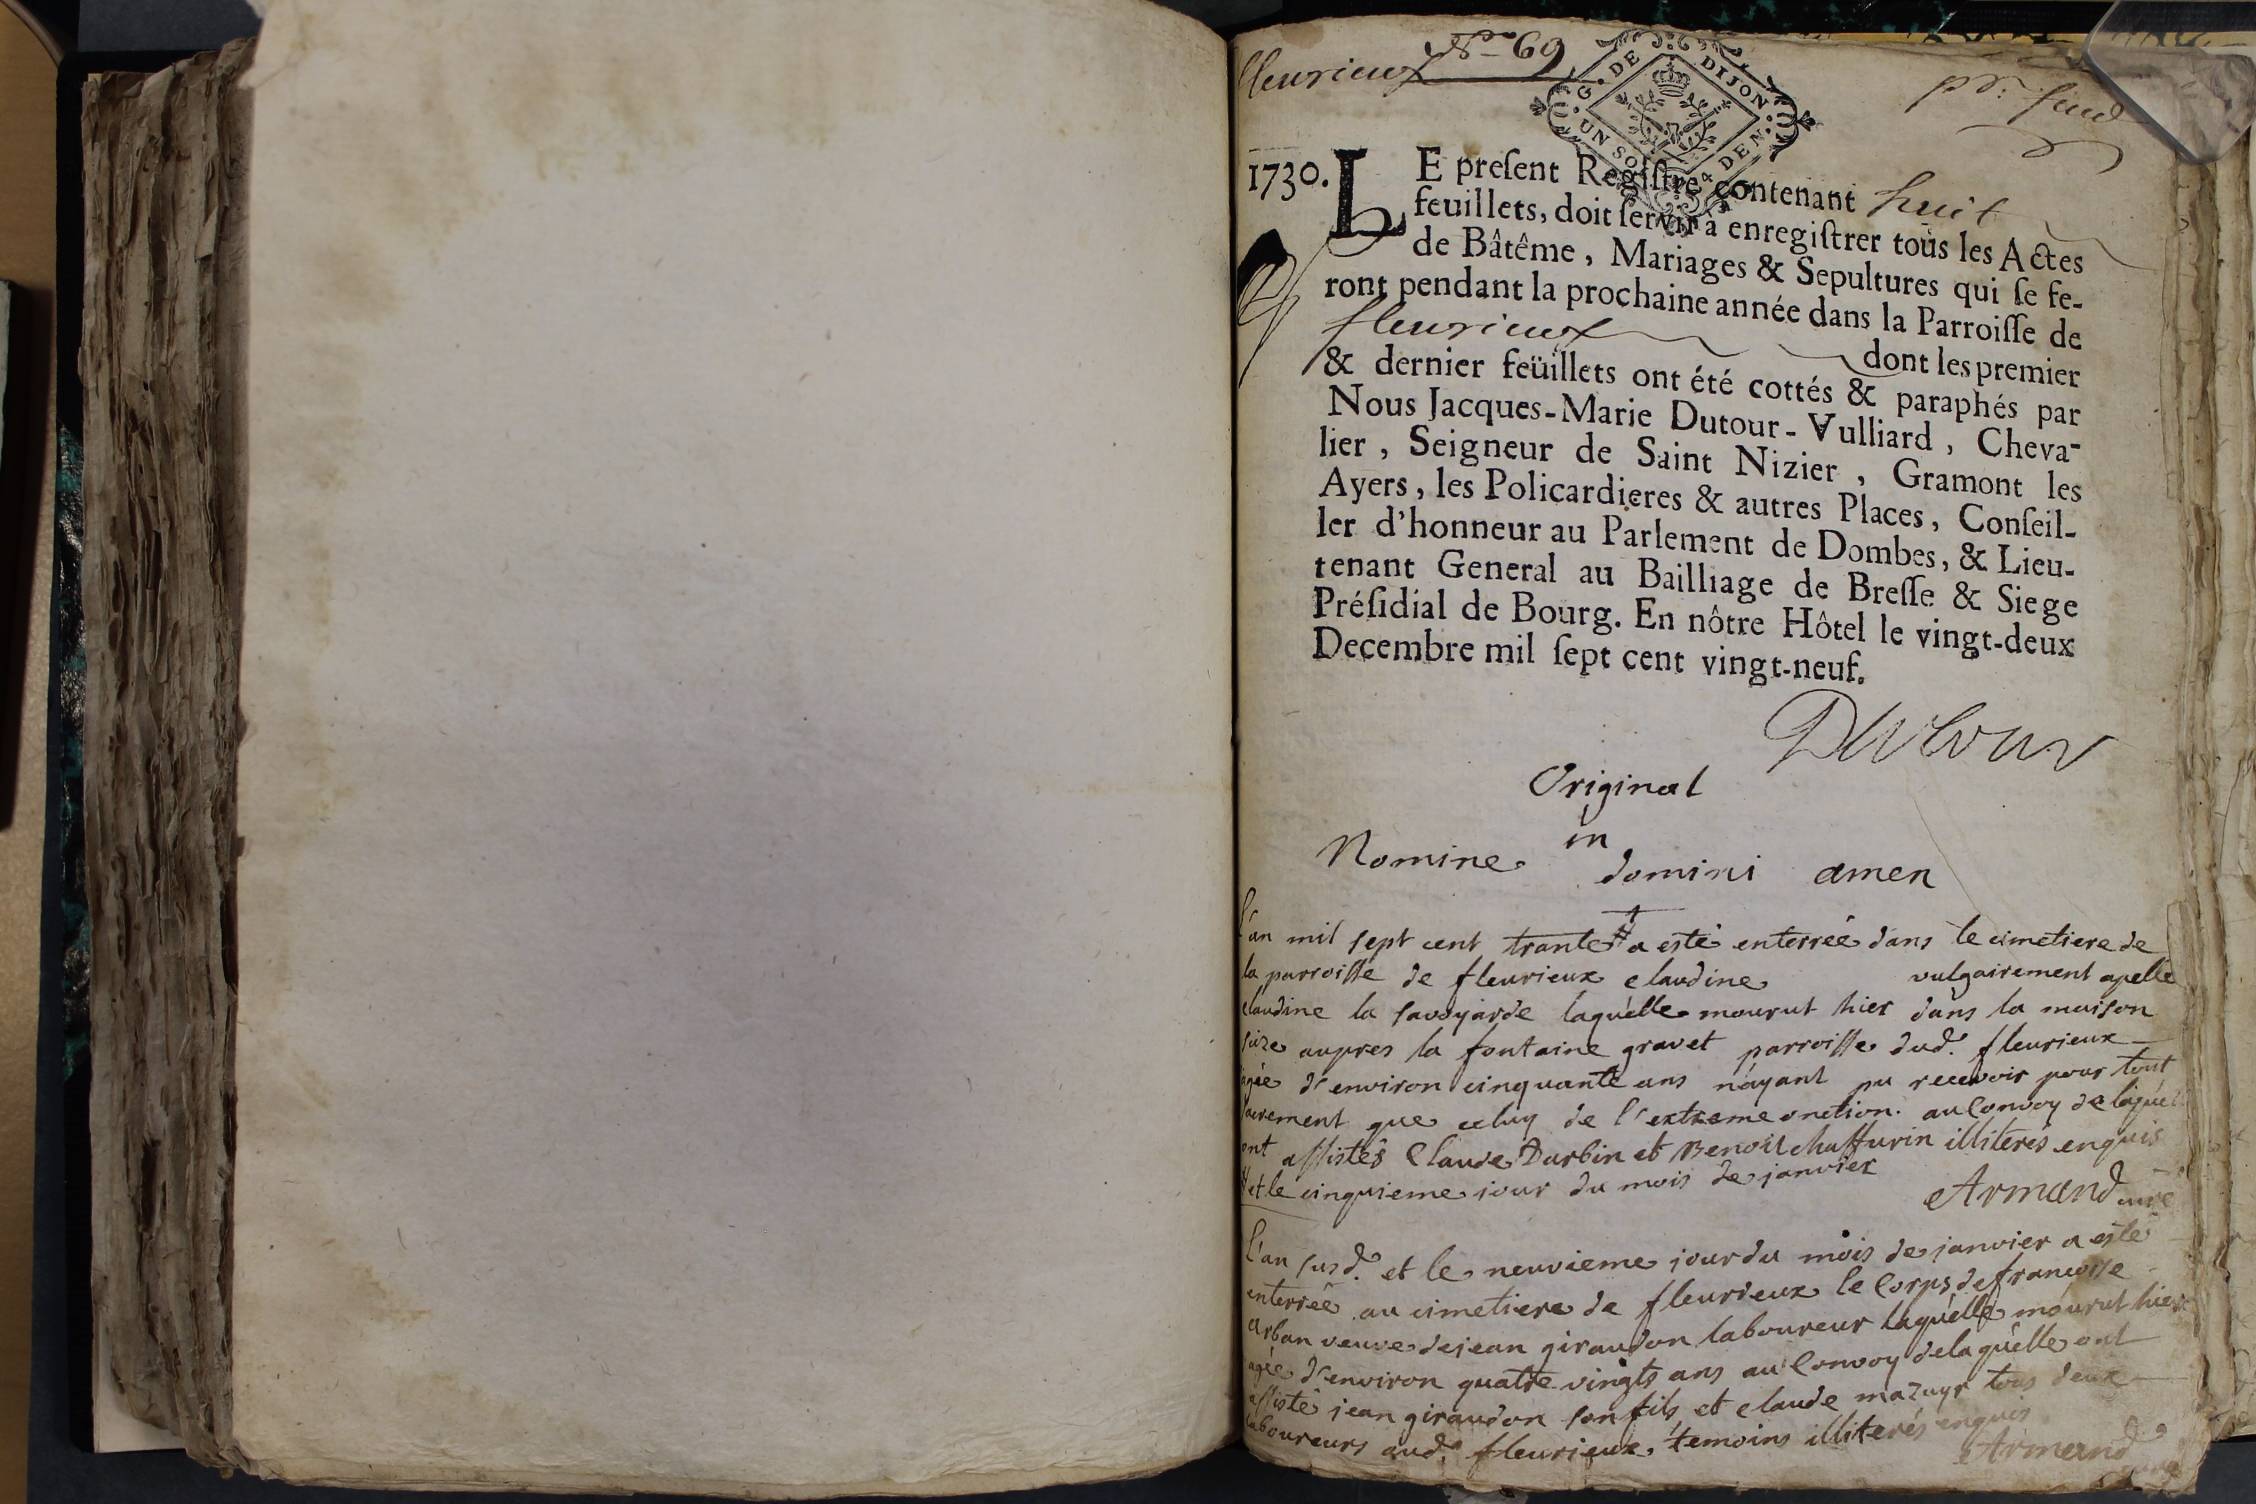 fleurieux N° 69
G. DE DIJON
UN SOL 4 DEN.
1730. LE preſent Regiſtre contenant huit
feuillets, doit ſervir à enregiſtrer tous les Actes
de Bâtême, Mariages & Sepultures qui ſe fe-
ront pendant la prochaine année dans la Parroiſſe de
fleurieux dont les premier
& dernier feüillets ont été cottés & paraphés par
Nous Jacques-Marie Dutour-Vulliard, Cheva-
lier, Seigneur de Saint Nizier, Gramont les
Ayers, les Policardieres & autres Places, Conſeil-
ler d'honneur au Parlement de Dombes, & Lieu-
tenant General au Bailliage de Breſſe & Siege
Préſidial de Bourg. En nôtre Hôtel le vingt-deux
Decembre mil ſept cent vingt-neuf.
Dutour
Original
in
Nomine domini amen
L'an mil sept cent trante # a esté enterrée dans le cimetiere de
la parroisse de fleurieux claudine vulgairement apellé
claudine la savoyarde laquelle mourut hier dans la maison
size aupres la fontaine gravet parroisse dud. fleurieux
agée d'environ cinquante ans n'ayant pu recevoir pour tout
sacrement que celuy de l'extreme onction. au Convoy de laquelle
ont assistés Claude Durbin et Benoit chaffurin illiterés enquis
# et le cinquieme jour du mois de janvier
Armand curé
L'an susd. et le neuvieme jour du mois de janvier a esté
enterrée au cimetiere de fleurieux le Corps de francoise
arban veuve de jean giraudon laboureur laquelle mourut hier
agée d'environ quatre vingts ans au Convoy de laquelle ont
assisté jean giraudon son fils et claude mazuyr tous deux
laboureurs aud. fleurieux, temoins illiterés enquis
Armand curé